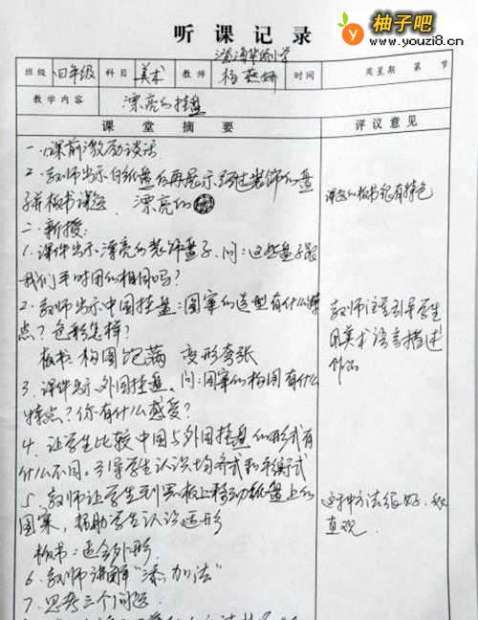 柚子吧
www.youzi8.cn
听课记录
小学
班级 四年级 科目 美术 教师 杨 时间 周星期 第 节
教学内容 漂亮的挂盘
课堂摘要 评议意见
一、课前激励谈话
2、教师出示白纸盘后再展示经过装饰的盘
子并板书课题 漂亮的 课题的板书很有特色
二、新授:
1、课件出示漂亮的装饰盘子、问:这些盘子跟
我们平时用的相同吗?
2、教师出示中国挂盘:图案的造型有什么特 教师注重引导学生
点?色彩怎样? 用美术语言描述
板书:构图饱满 变形夸张 作品
3、课件出示外国挂盘、问:图案的构图有什么
特点?你有什么感受?
4、让学生比较中国与外国挂盘的形式有
什么不同。引导学生认识均齐式和平衡式
5、教师让学生到黑板上移动纸盘上的 这种方法很好、很
图案,帮助学生认识适形 直观
板书:适合外形
6、教师讲解“添加法”
7、思考三个问题